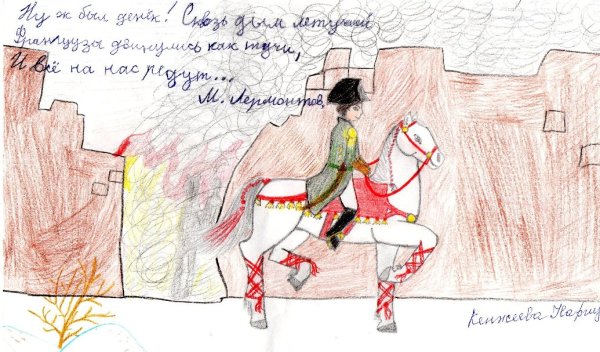 Ну ж был денёк! Сквозь дым летучий
Французы двинулись как тучи,
И всё на нас редут...
М. Лермонтов
Кенжеева